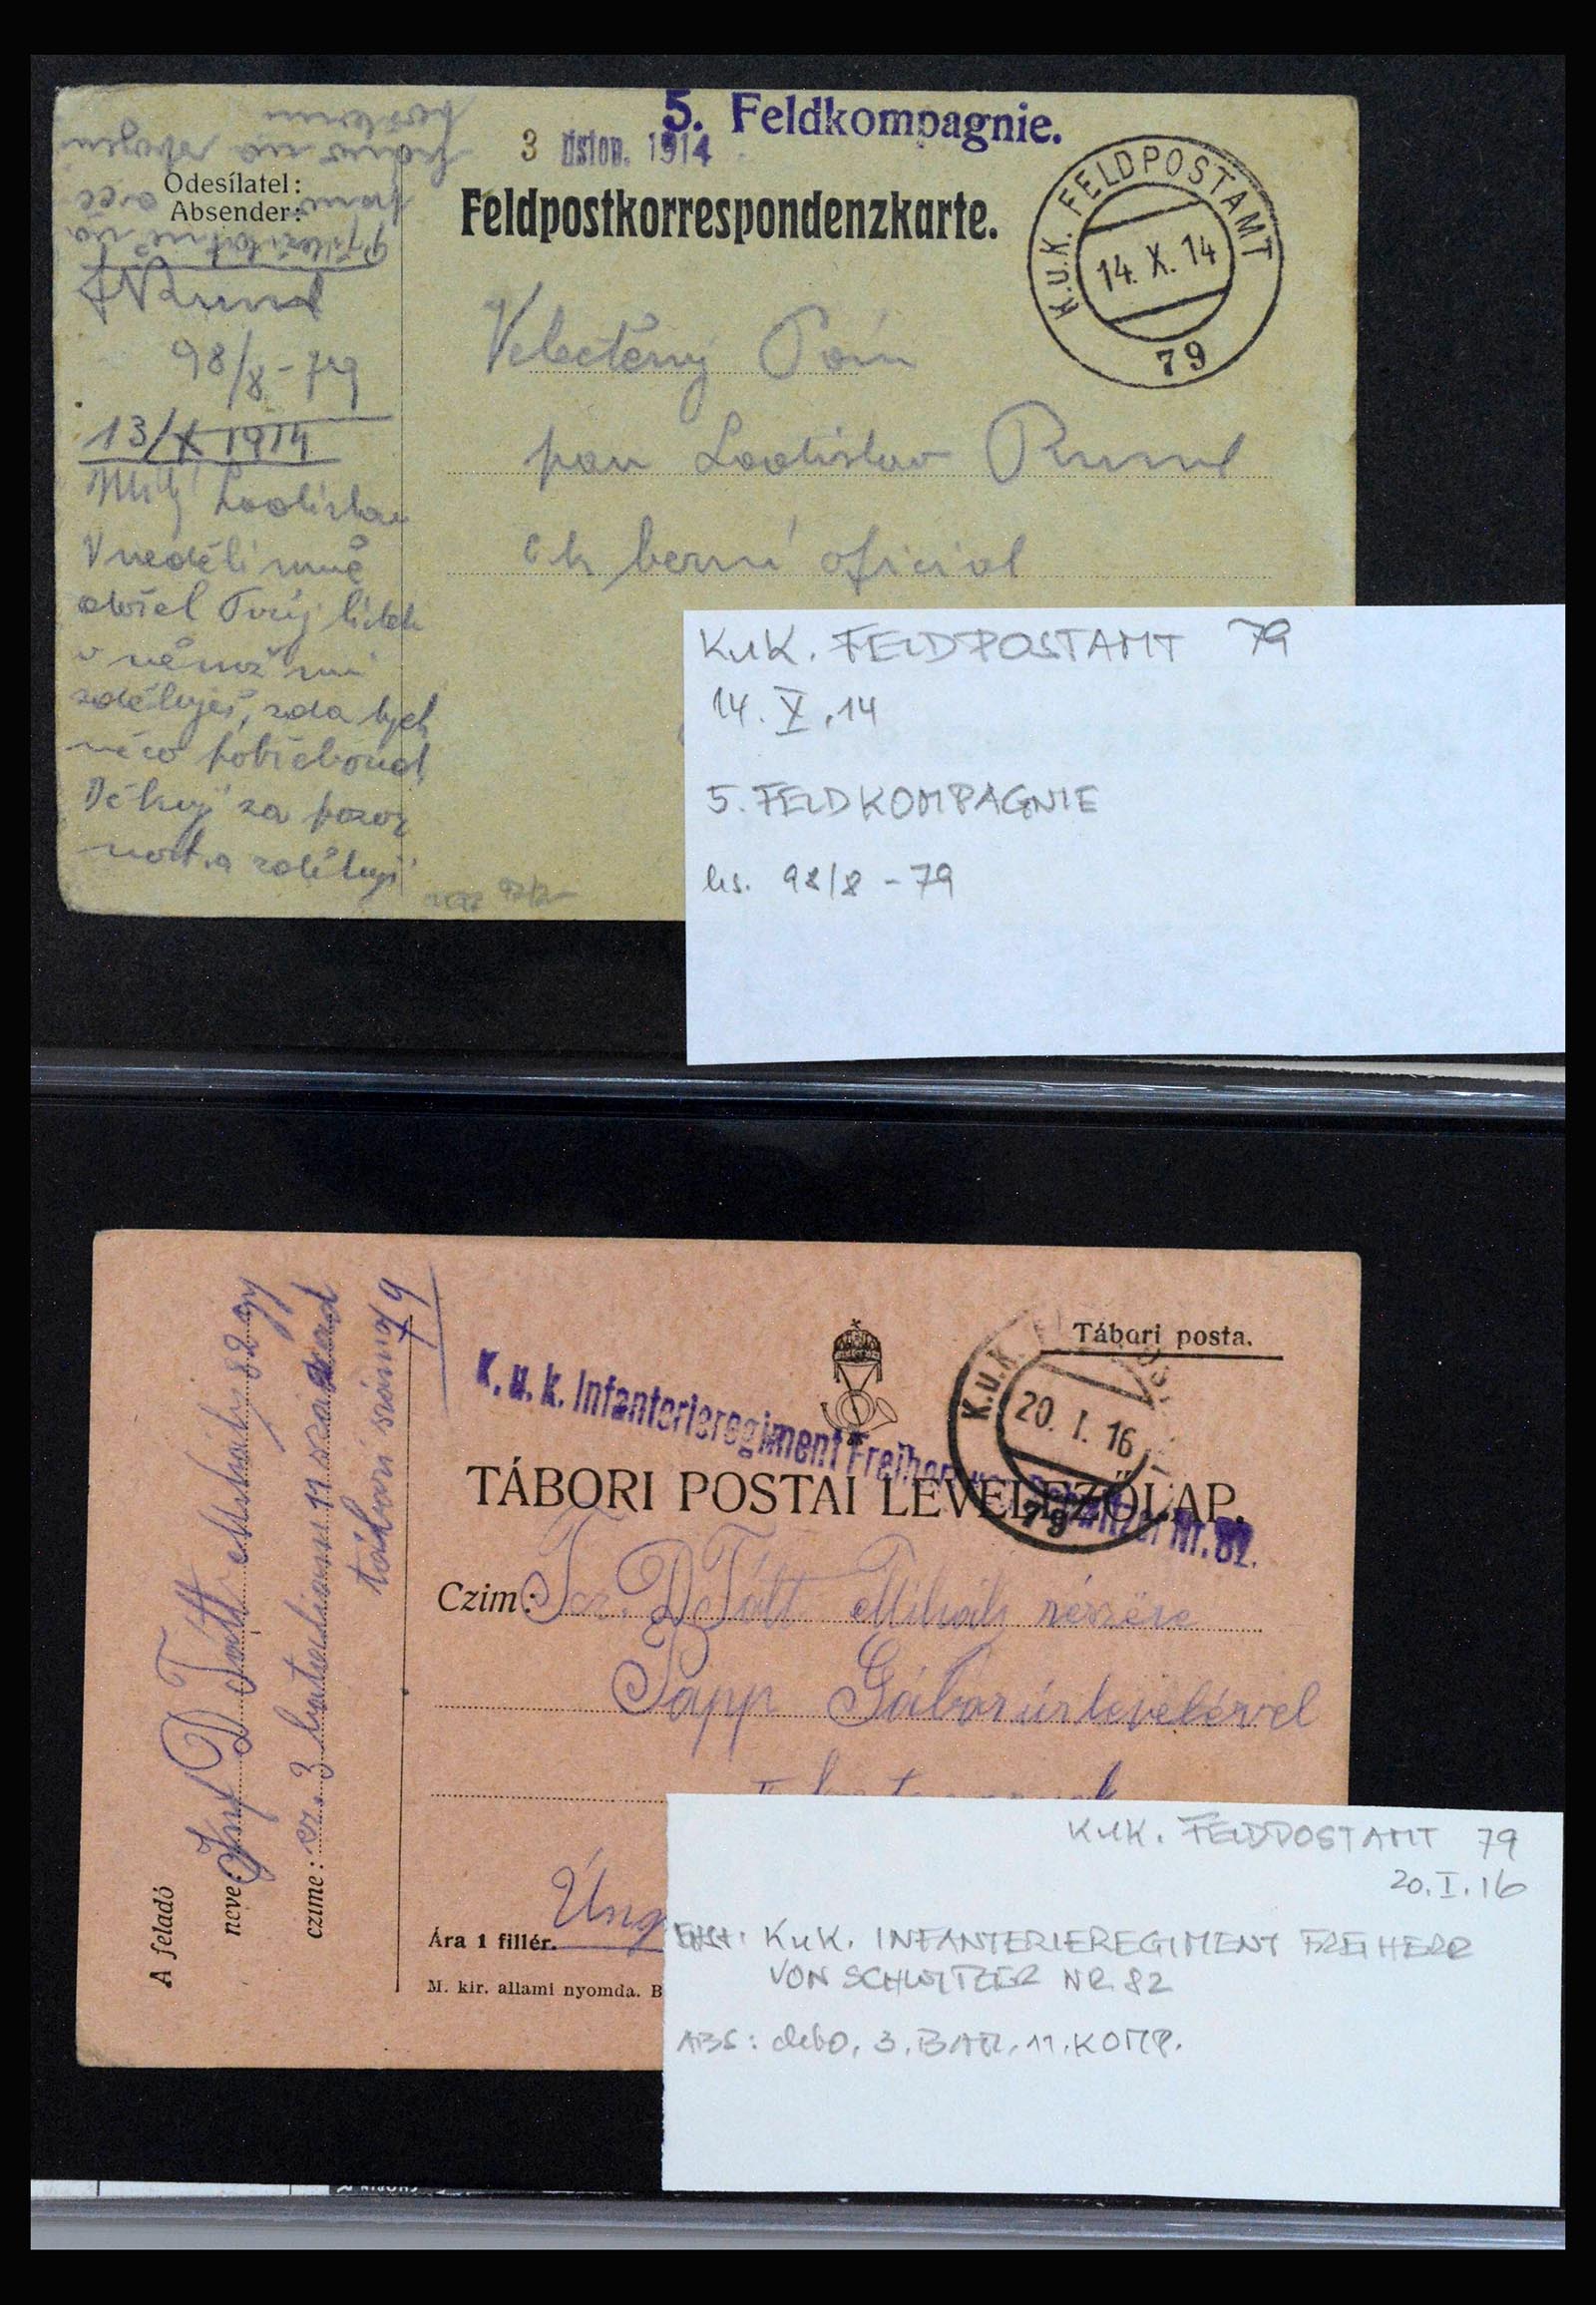 5. Feldkompagnie.
3 listop. 1914
Odesílatel:
Absender:
Feldpostkorrespondenzkarte.
K.u.K. FELDPOSTAMT
14. X. 14
79
98/8-79
13/X 1914
Milý Ladislave
V neděli mně
došel Tvůj lístek
v němž mi
sděluješ, zda bych
něco potřeboval
Děkuji za pozor
nost a sděluji
Velectěný Pán
pan Ladislav
ck berní oficial
KuK. FELDPOSTAMT 79
14. X. 14
5. FELDKOMPAGNIE
hs. 98/8 - 79
Tábori posta.
K.u.K.
20. I. 16
79
K. u. k. Infanterieregiment Freiherr von Nr. 82.
TÁBORI POSTAI LEVELEZŐLAP.
Czim: D Tótt Mihály részére
Papp Gábor úr levelével
Ung
Ára 1 fillér.
M. kir. allami nyomda. B
A feladó
neve: Inf D Tótt Mihály 82 gy
czime: 3 bataliom 11 század
tábori szám 79
KuK. FELDPOSTAMT 79
20. I. 16
KuK. INFANTERIEREGIMENT FREIHERR
VON SCHWITZER NR 82
ABS: dto, 3. BAT. 11. KOMP.